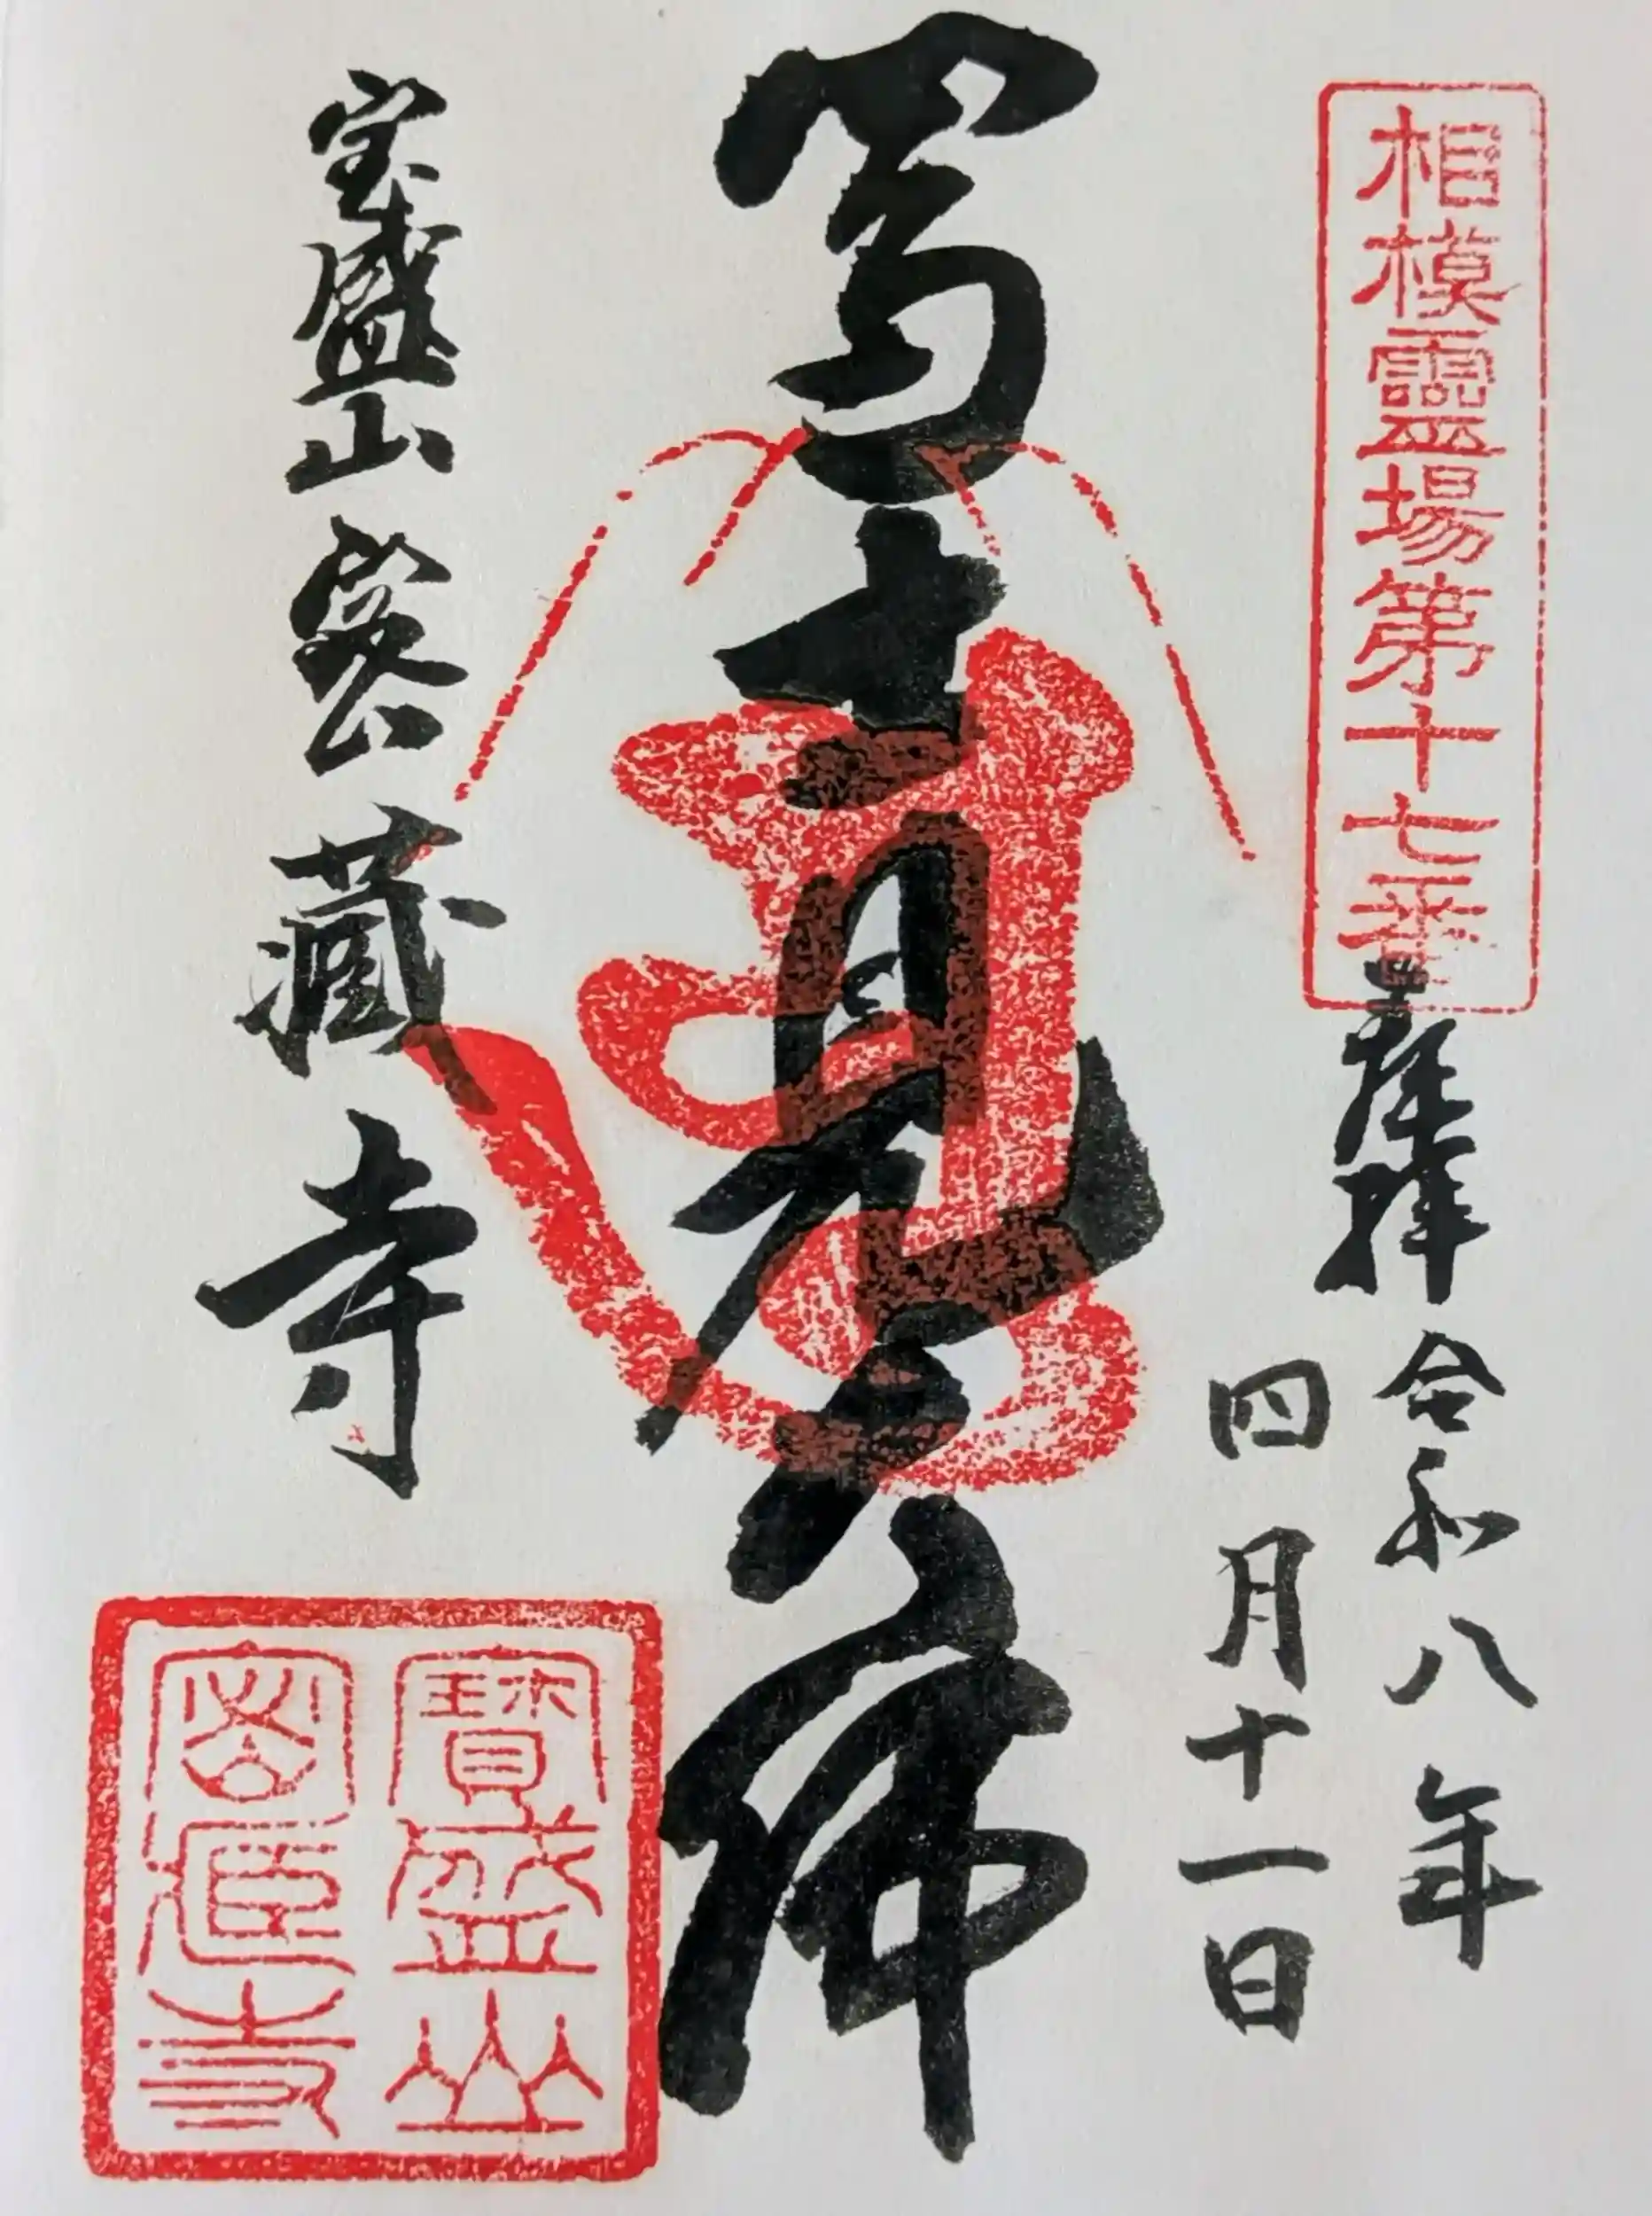 相模靈場第十七番
奉拝 令和八年
四月十一日
富士見大佛
宝盛山 密藏寺
寶盛山
密藏寺